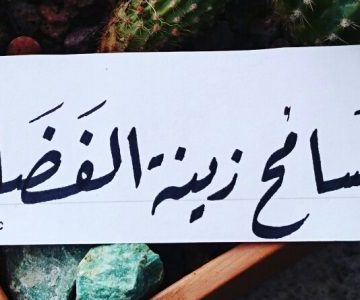 سامُح زينة الفَضَا